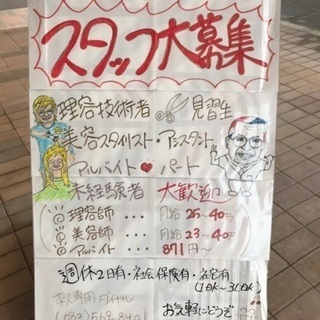 スタッフ大募集
理容技術者 見習生
美容スタイリスト・アシスタント
アルバイト♥パート
未経験者 大歓迎
理容師・・・月給25〜40万
美容師・・・月給23〜40万
アルバイト・・・871円〜
週休2日有・社会保険有・社宅有
(1DK〜3LDK)
求人専用ダイヤル
お気軽にどうぞ